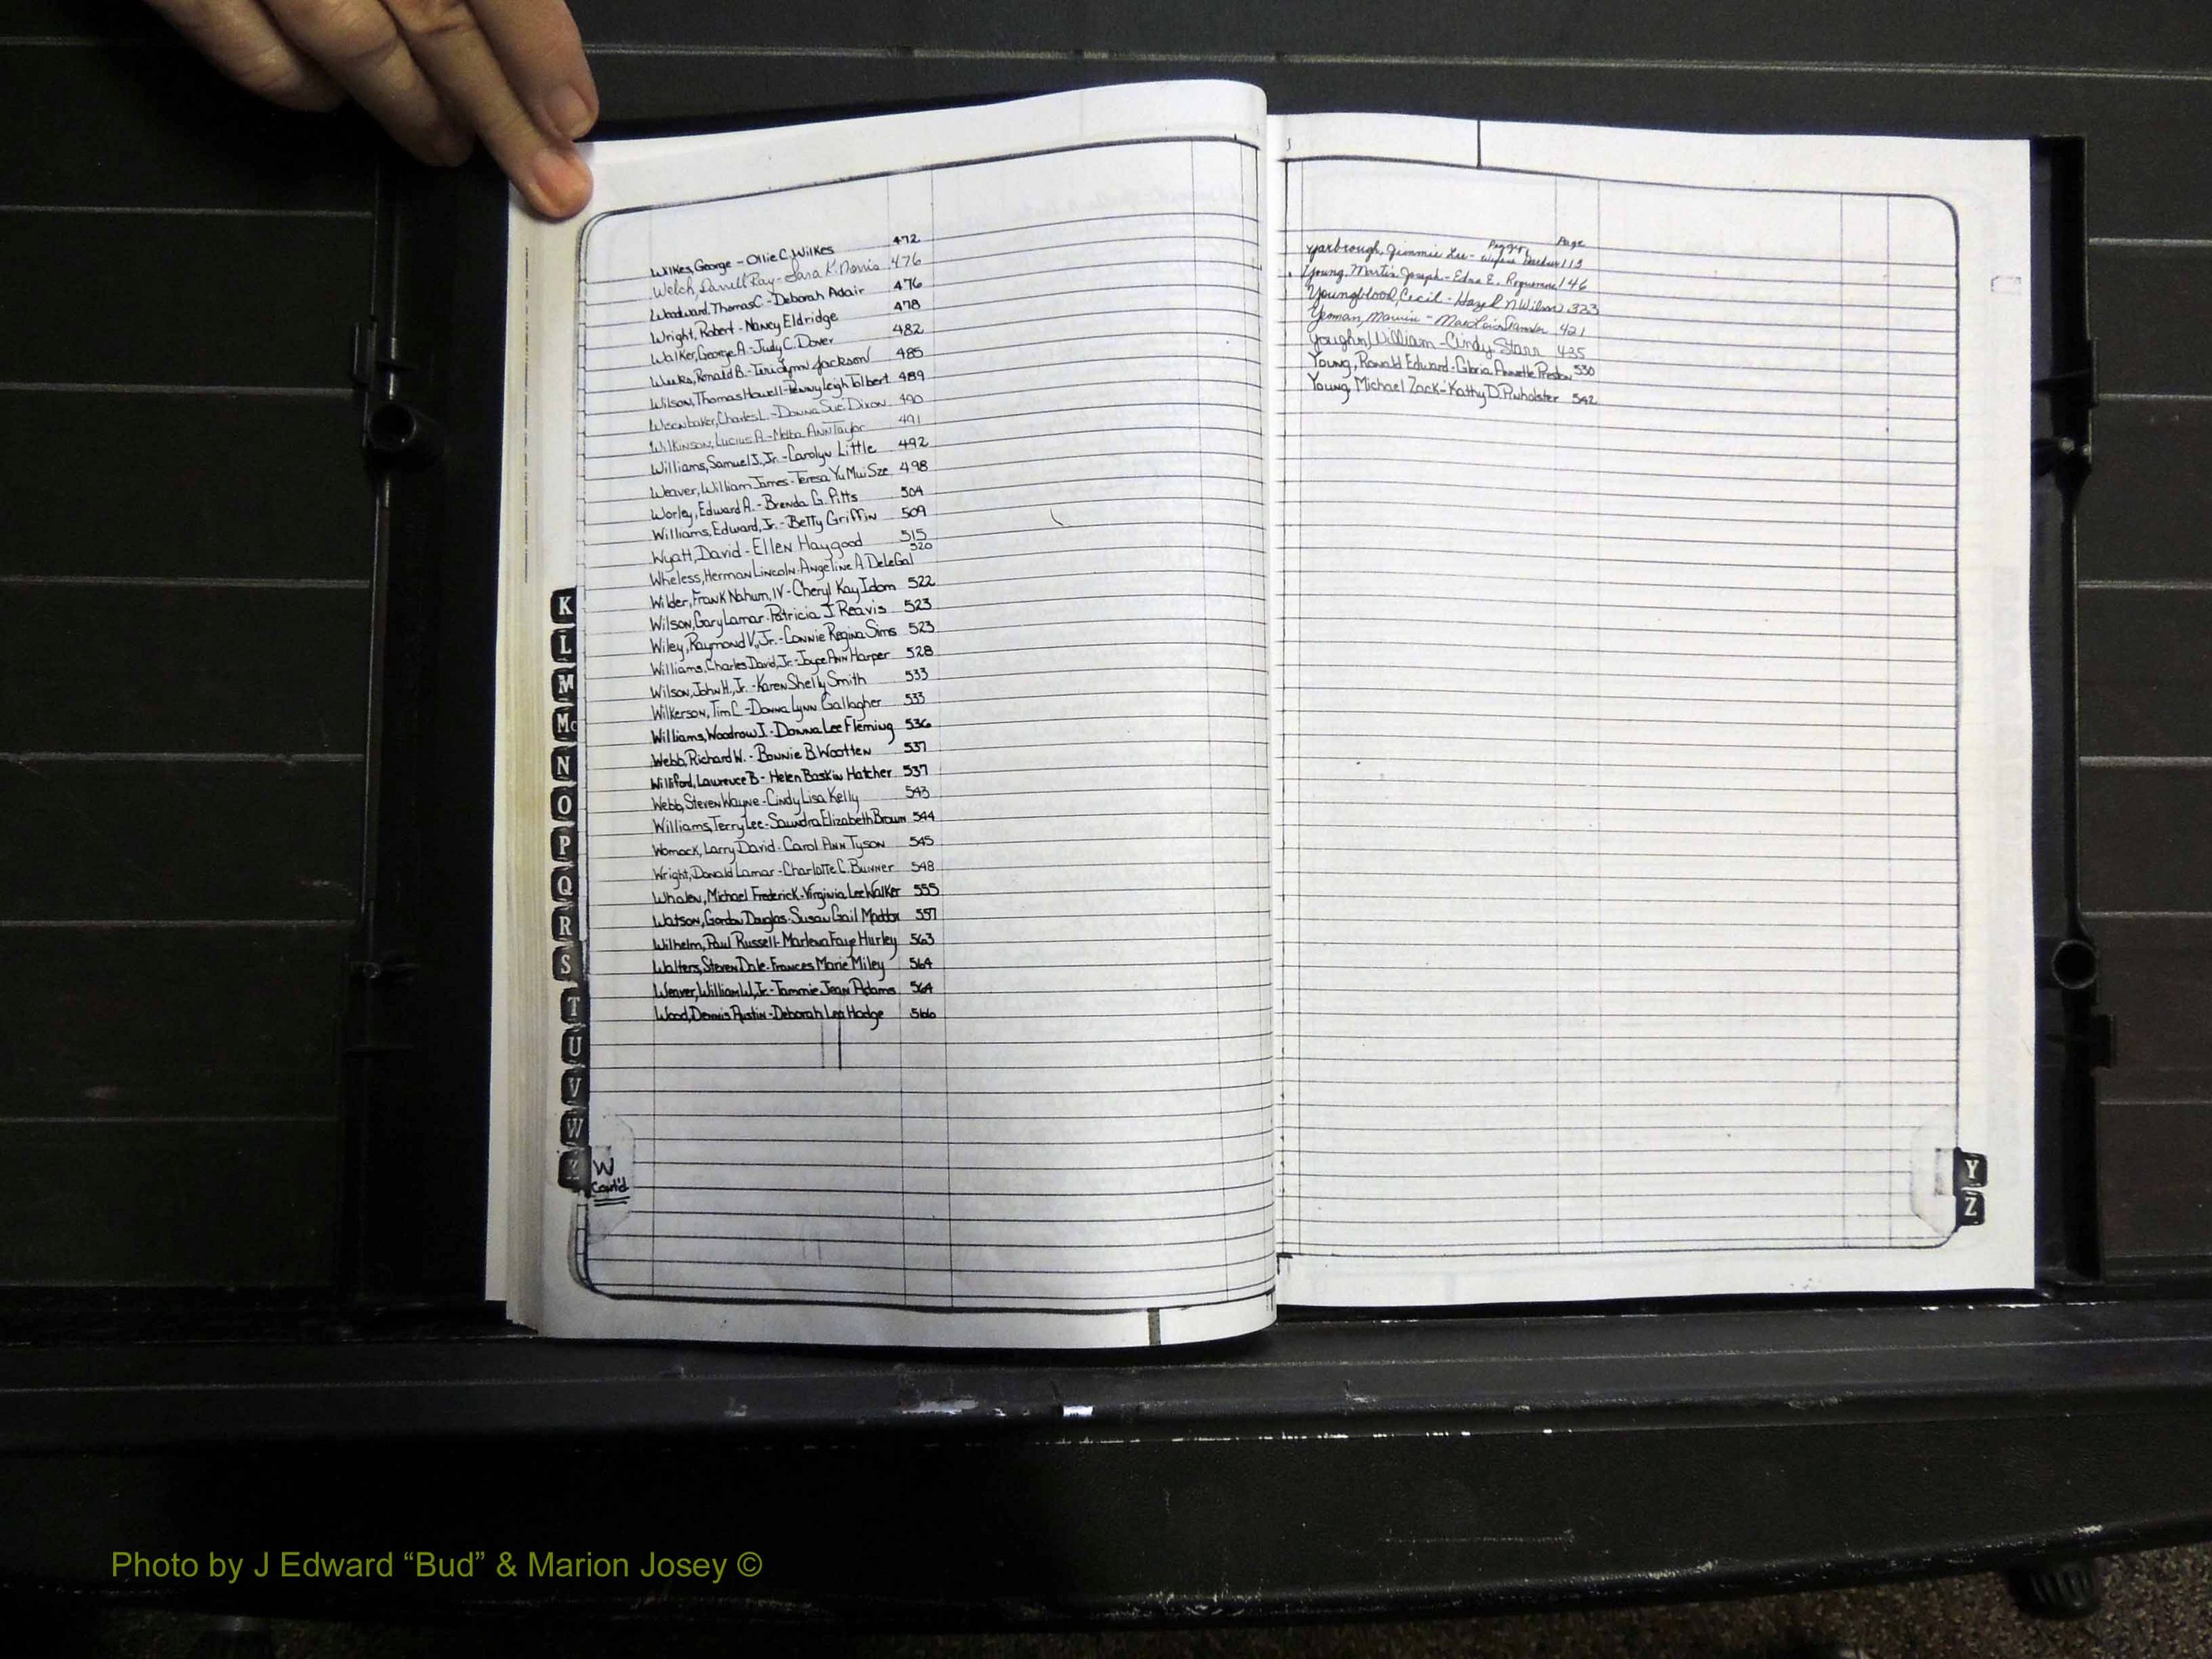 Wilkes, George - Ollie C. Wilkes 472
Welch, Darrell Ray - Sara K. Norris 476
Woodward, Thomas C. - Deborah Adair 476
Wright, Robert - Nancy Eldridge 478
Walker, George A. - Judy C. Dover 482
Weeks, Ronald B. - Teri Lynn Jackson 485
Wilson, Thomas Howell - Penny Leigh Tolbert 489
Wisenbaker, Charles L. - Donna Sue Dixon 490
Wilkinson, Lucius A. - Melba Ann Taylor 491
Williams, Samuel J., Jr. - Carolyn Little 492
Weaver, William James - Teresa Yu Mui Sze 498
Worley, Edward A. - Brenda G. Pitts 504
Williams, Edward, Jr. - Betty Griffin 509
Wyatt, David - Ellen Haygood 515
Wheless, Herman Lincoln - Angeline A. DeleGal 520
Wilder, Frank Nahum, IV - Cheryl Kay Idom 522
Wilson, Gary Lamar - Patricia J. Reavis 523
Wiley, Raymond V., Jr. - Connie Regina Sims 523
Williams, Charles David, Jr. - Joyce Ann Harper 528
Wilson, John H., Jr. - Karen Shelly Smith 533
Wilkerson, Tim C. - Donna Lynn Gallagher 533
Williams, Woodrow I. - Donna Lee Fleming 536
Webb, Richard W. - Bonnie B. Wootten 537
Williford, Lawrence B - Helen Baskin Hatcher 537
Webb, Steven Wayne - Cindy Lisa Kelly 543
Williams, Terry Lee - Saundra Elizabeth Brown 544
Womack, Larry David - Carol Ann Tyson 545
Wright, Donald Lamar - Charlotte C. Bunner 548
Whalen, Michael Frederick - Virginia Lee Walker 555
Watson, Gordon Douglas - Susan Gail Maddox 557
Wilhelm, Paul Russell - Marlena Faye Hurley 563
Walters, Steven Dale - Frances Marie Miley 564
Weaver, William W., Jr. - Tammie Jean Adams 564
Wood, Dennis Austin - Deborah Lea Hodge 566
K
L
M
Mc
N
O
P
Q
R
S
T
U
V
W
W
Cont'd
Peggy Page
Yarbrough, Jimmie Lee - 113
Young, Martin Joseph - Edna E. 146
Youngblood, Cecil - Hazel N. Wilson 333
Yeoman, Marvin - 421
Youghn, William - Cindy Starr 435
Young, Ronald Edward - Gloria Annette Preston 530
Young, Michael Zack - Kathy D. Pinholster 542
Y
Z
Photo by J Edward “Bud” & Marion Josey ©